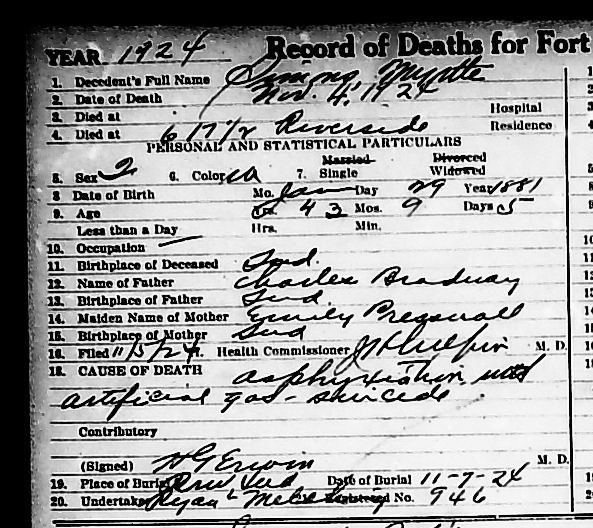 YEAR 1924 Record of Deaths for Fort
1. Decedent's Full Name Simons, Myrtle
2. Date of Death Nov. 4, 1924
3. Died at Hospital
4. Died at 617 1/2 Riverside Residence
PERSONAL AND STATISTICAL PARTICULARS
Married Divorced
5. Sex 6. Color W 7. Single Widowed
8 Date of Birth Mo. Jan Day 29 Year 1881
9. Age Yrs. 43 Mos. 9 Days 5
Less than a Day Hrs. Min.
10. Occupation
11. Birthplace of Deceased Ind.
12. Name of Father Charles Bradway
13. Birthplace of Father Ind
14. Maiden Name of Mother Emily Pressnall
15. Birthplace of Mother Ind
16. Filed 11/5/24. Health Commissioner M. D.
18. CAUSE OF DEATH asphyxiation with
artificial gas - suicide
Contributory
(Signed) H G Erwin M. D.
19. Place of Burial Ind Date of Burial 11-7-24
20. Undertaker Registered No. 946